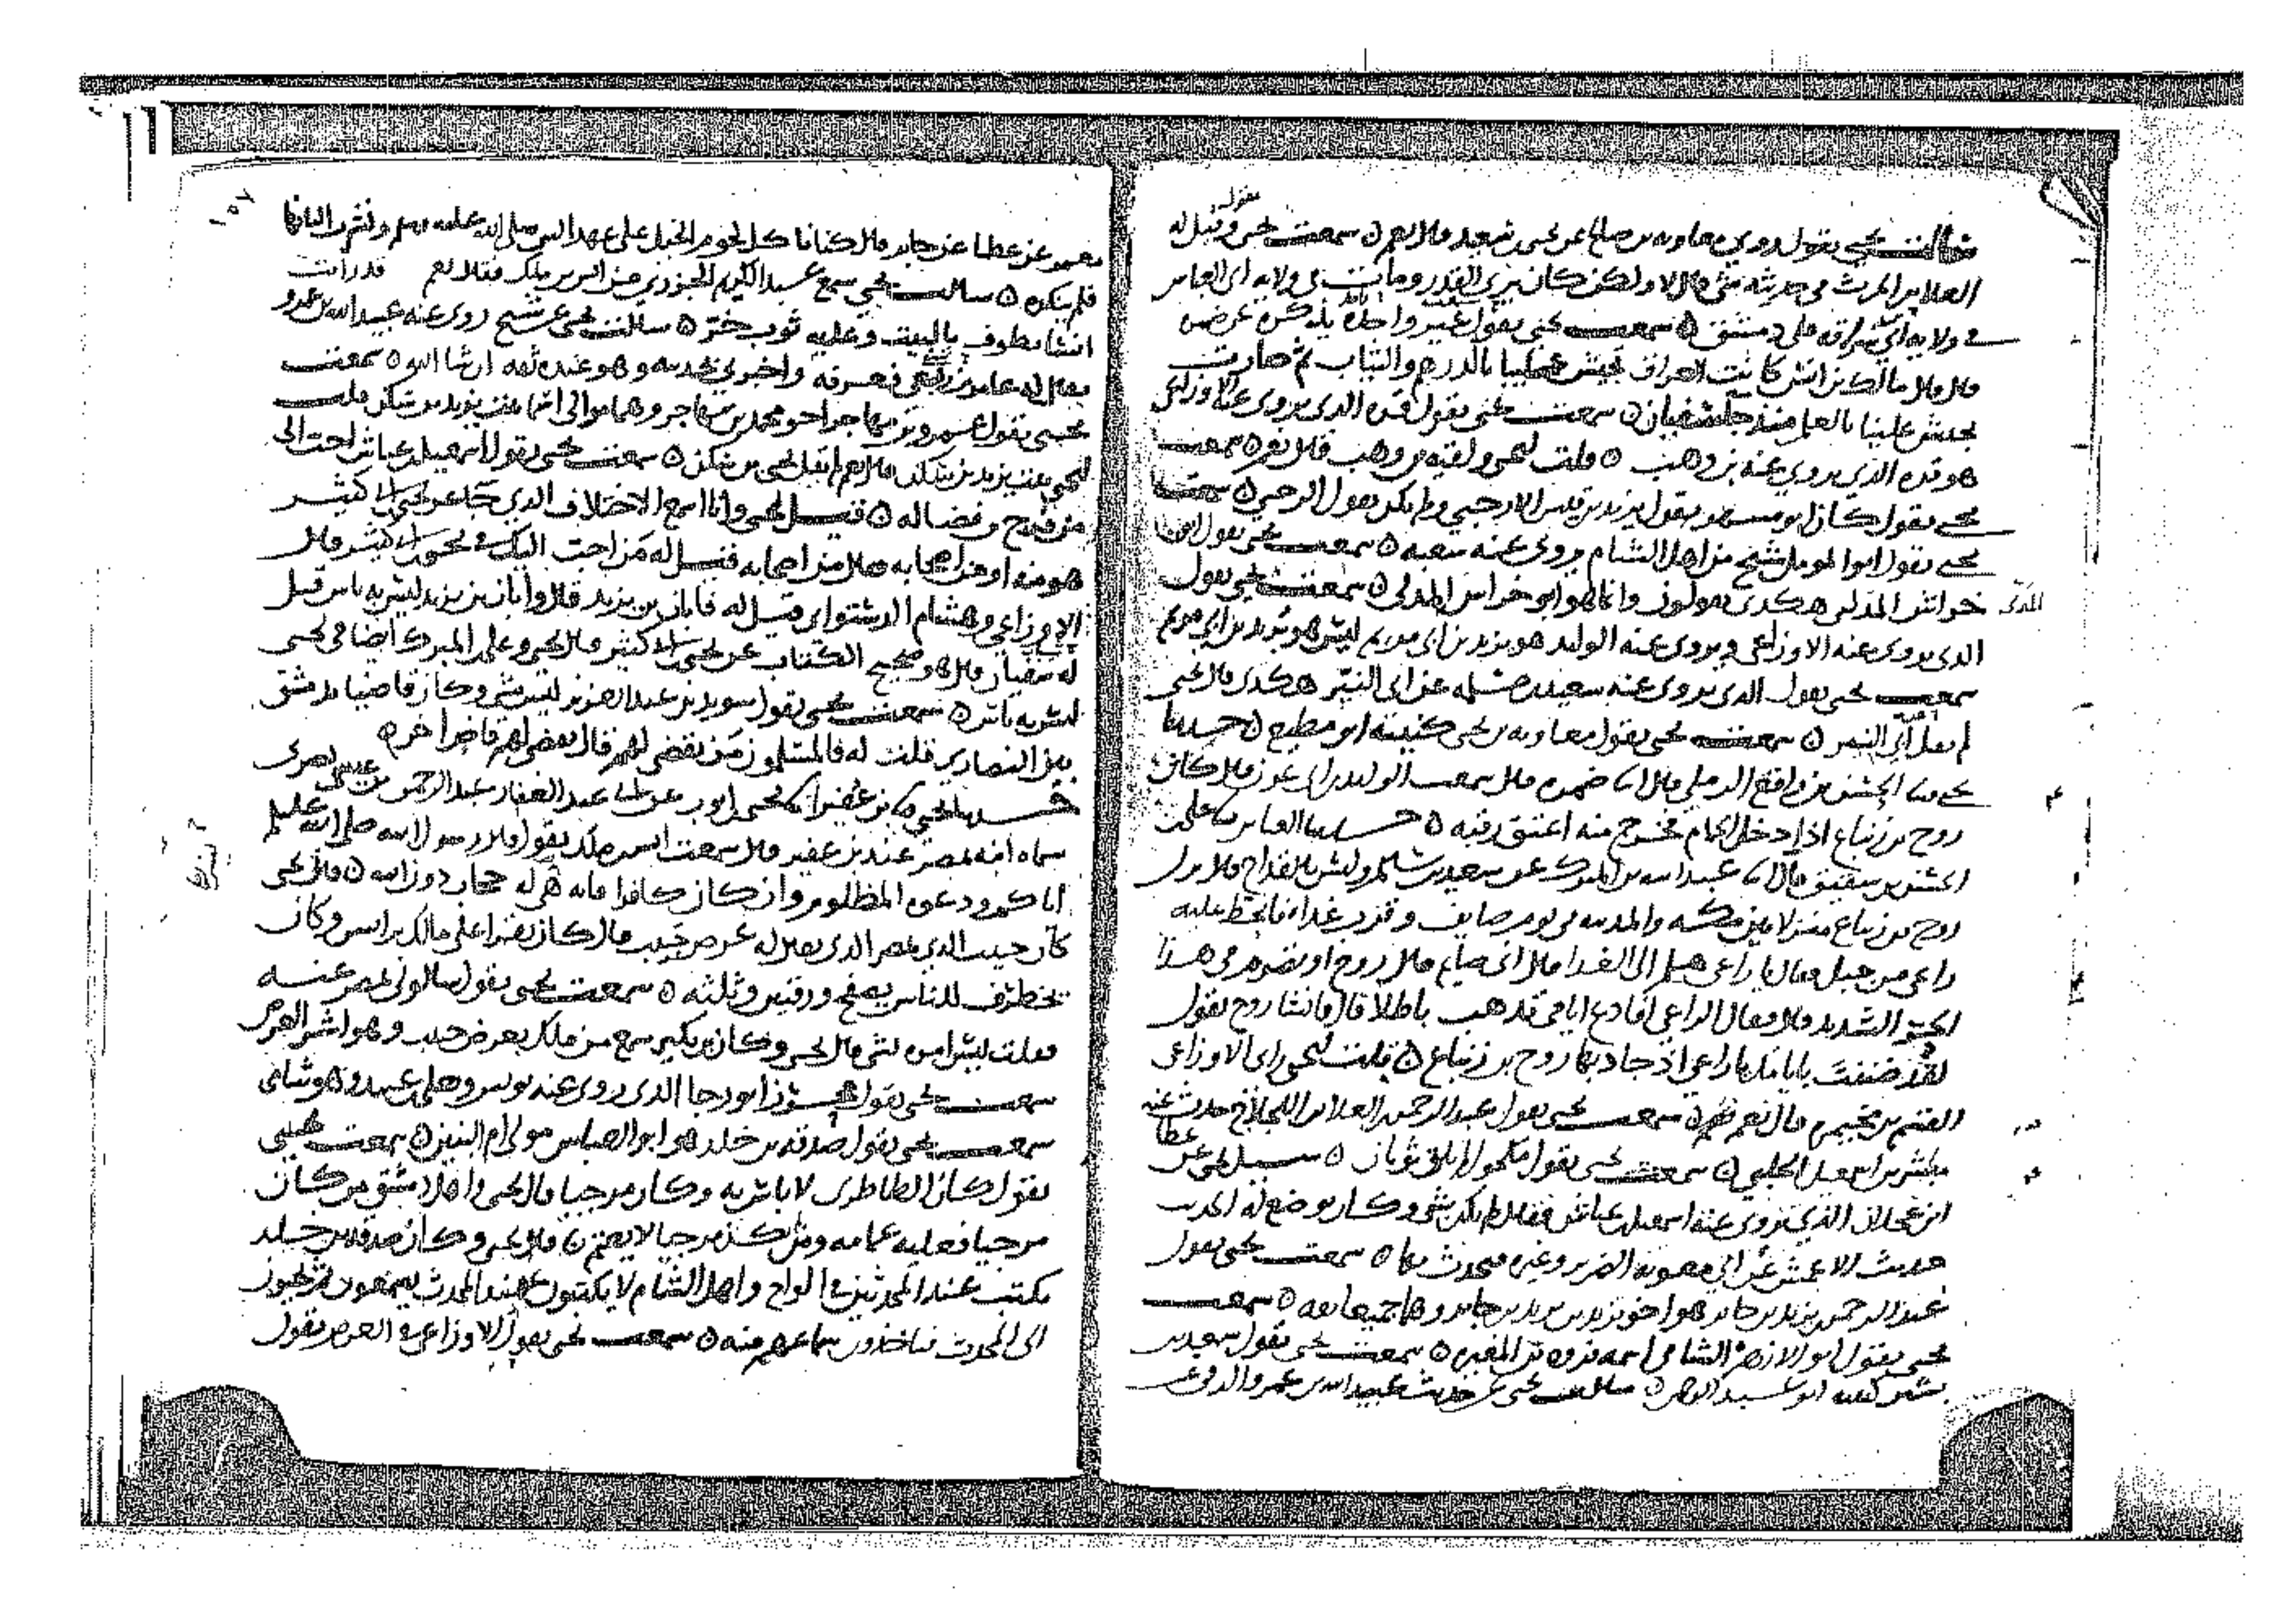 يقول
سالت يحيى يقول روى معاوية بن صالح عن يحيى بن سعيد قال نعم ه سمعت يحيى وقيل له
العلا بن الحرث في حديثه شي قال لا ولكن كان يرى القدر ومات في ولاية ابي العباس
في ولاية ابن سراقة على دمشق ه سمعت يحيى يقول غير واحد يذكر عن
قال قال مالك بن انس كانت العراق تجيش علينا بالدرهم والثياب ثم صارت
تجيش علينا بالعلم منذ جا سفيان ه سمعت يحيى يقول قرة الذي يروي عنه الاوزاعي
هو قرة الذي يروي عنه بن وهب ه قلت ليحيى ولقيه بن وهب قال نعم ه سمعت
يحيى يقول كان ابو مسهر يقول يزيد بن قيس الارحبي ولم يكن يقول الرحبي ه سمعت
يحيى يقول ابو المومل شيخ من اهل الشام يروي عنه شعبة ه سمعت يحيى يقول ابو
خراش المدلي هكدى يقولون وانما هو ابو خراش المدلي ه سمعت يحيى يقول
الذي يروي عنه الاوزاعي ويروي عنه الوليد هو يزيد بن ابي مريم ليس هو بريد بن ابي مريم
سمعت يحيى يقول الذي يروي عنه سعيد بن مسلمه عن ابي النمر هكدى قال يحيى
لم يقل ابي النمر ه سمعت يحيى يقول معاوية بن يحيى كنيته ابو مطيع ه حدثنا
يحيى نا الحسن بن واقع الرملي قال نا ضمرة قال سمعت الوليد بن ابي عون قال كان
روح بن زنباع اذا دخل الحمام فخرج منه اعتق رقبه ه حدثنا العباس نا علي بن
الحسن بن شقيق قال انا عبد الله بن المبرك عن سعيد بن سالم وليس بالقداح قال نزل
روح بن زنباع منزلا بين مكة والمدينة في يوم صايف وقرب غداه فانحط عليه
راعي من جبل فقال يا راعي هلم الى الغدا قال اني صايم قال روح او تصوم في هذا
الحر الشديد قال فقال الراعي افادع ايامي تذهب باطلا قال فانشا روح يقول
لقد ضننت بايامك يا راعي اذ جاد بها روح بن زنباع ه قلت ليحيى راى الاوزاعي
القسم بن مخيمرة قال نعم ه سمعت يحيى يقول عبد الرحمن بن العلا بن اللجلاج حدث عنه
مبشر بن اسمعيل الحلبي ه سمعت يحيى يقول مكحول الازدي ه سيل يحيى عن عطا
ابن عجلان الذي يروي عنه اسمعيل بن عياش فقال لم يكن بشي وكان يوضع له الحديث
حديث الاعمش عن ابي معوية الضرير وغيره فيحدث بها ه سمعت يحيى يقول
عبد الرحمن بن يزيد بن جابر هو اخو يزيد بن يزيد بن جابر وهما جميعا ثقه ه سمعت
يحيى يقول ابو الازهر الشامي اسمه فروة بن المغيرة ه سمعت يحيى يقول سعيد بن
بشير كنيته ابو عبد الرحمن ه سالت يحيى عن حديث عبيد الله بن عمرو الرقي عن
١٥٧
معمر عن عطا عن جابر قال كنا ناكل لحوم الخيل على عهد النبي صلى الله عليه وسلم ونشرب البانها
فلم ينكره ه سالت يحيى سمع عبد الكريم الجزري من انس بن ملك فقال نعم قد رايت
انسا يطوف بالبيت وعليه ثوب خز ه سالت يحيى عن شيخ روى عنه عبيد الله بن عمرو
يقال له عامر فعرفه واخبرني بحديثه وهو عنده ثقه ان شا الله ه سمعت
يحيى يقول عمرو بن مهاجر اخو محمد بن مهاجر وهما موالي اسما بنت يزيد بن سكن قلت
ليحيى بنت يزيد بن سكن قال نعم ه سمعت يحيى يقول اسمعيل بن عياش احب الى
من فرج بن فضاله ه قيل ليحيى وانا اسمع الاختلاف الذي جا عن يحيى بن ابي كثير
هو منه او من اصحابه قال من اصحابه فقيل له من احب اليك في يحيى بن ابي كثير قال
الاوزاعي وهشام الدستوائي قيل له فابان بن يزيد قال وابان بن يزيد ليس به باس قيل
له شيبان قال هو صحيح الكتاب عن يحيى بن ابي كثير قال يحيى وعلي بن المبرك ايضا في يحيى
ليس به باس ه سمعت يحيى يقول سويد بن عبد العزيز ليس بشي وكان قاضيا بدمشق
بين النصارى قلت له فالمسلمون من يقضي لهم قال يقضي لهم قاض اخر ه
حدثنا يحيى نا بن عفير نا يحيى بن ايوب عن ابي عبد الغفار عبد الرحمن بن عيسى بصري
سماه لنا بمصر عند بن عفير قال سمعت انس بن ملك يقول قال رسول الله صلى الله عليه وسلم
اياكم ودعوة المظلوم وان كان كافرا فانه ليس لها حجاب دون الله ه قال يحيى
كان حبيب الذي بمصر الذي يقال له عرض حبيب قال كان يقرا على مالك بن انس وكان
يخطرف للناس يصفح ورقتين وثلثه ه سمعت يحيى يقول سالوني بمصر عنه
فقلت ليس بشي قال يحيى وكان بن بكير سمع من ملك بعرض حبيب وهو اشر العرض
سمعت يحيى يقول محرز ابو رجا الذي روى عنه يونس ويعلى بن عبيد هو شامي
سمعت يحيى يقول صدقة بن خلد هو ابو العباس مولى ام البنين ه سمعت يحيى
يقول كان الطاطري لا باس به وكان مرجيا قال يحيى واهل دمشق من كان
مرجيا فعليه عمامه ومن لم يكن مرجيا لا يعتم ه قال يحيى وكان صدقة بن خلد
يكتب عند المحدثين في الواح واهل الشام لا يكتبون عند المحدث يسمعون ثم يجيون
الى المحدث فياخذون سماعهم منه ه سمعت يحيى يقول الاوزاعي في العرض يقول